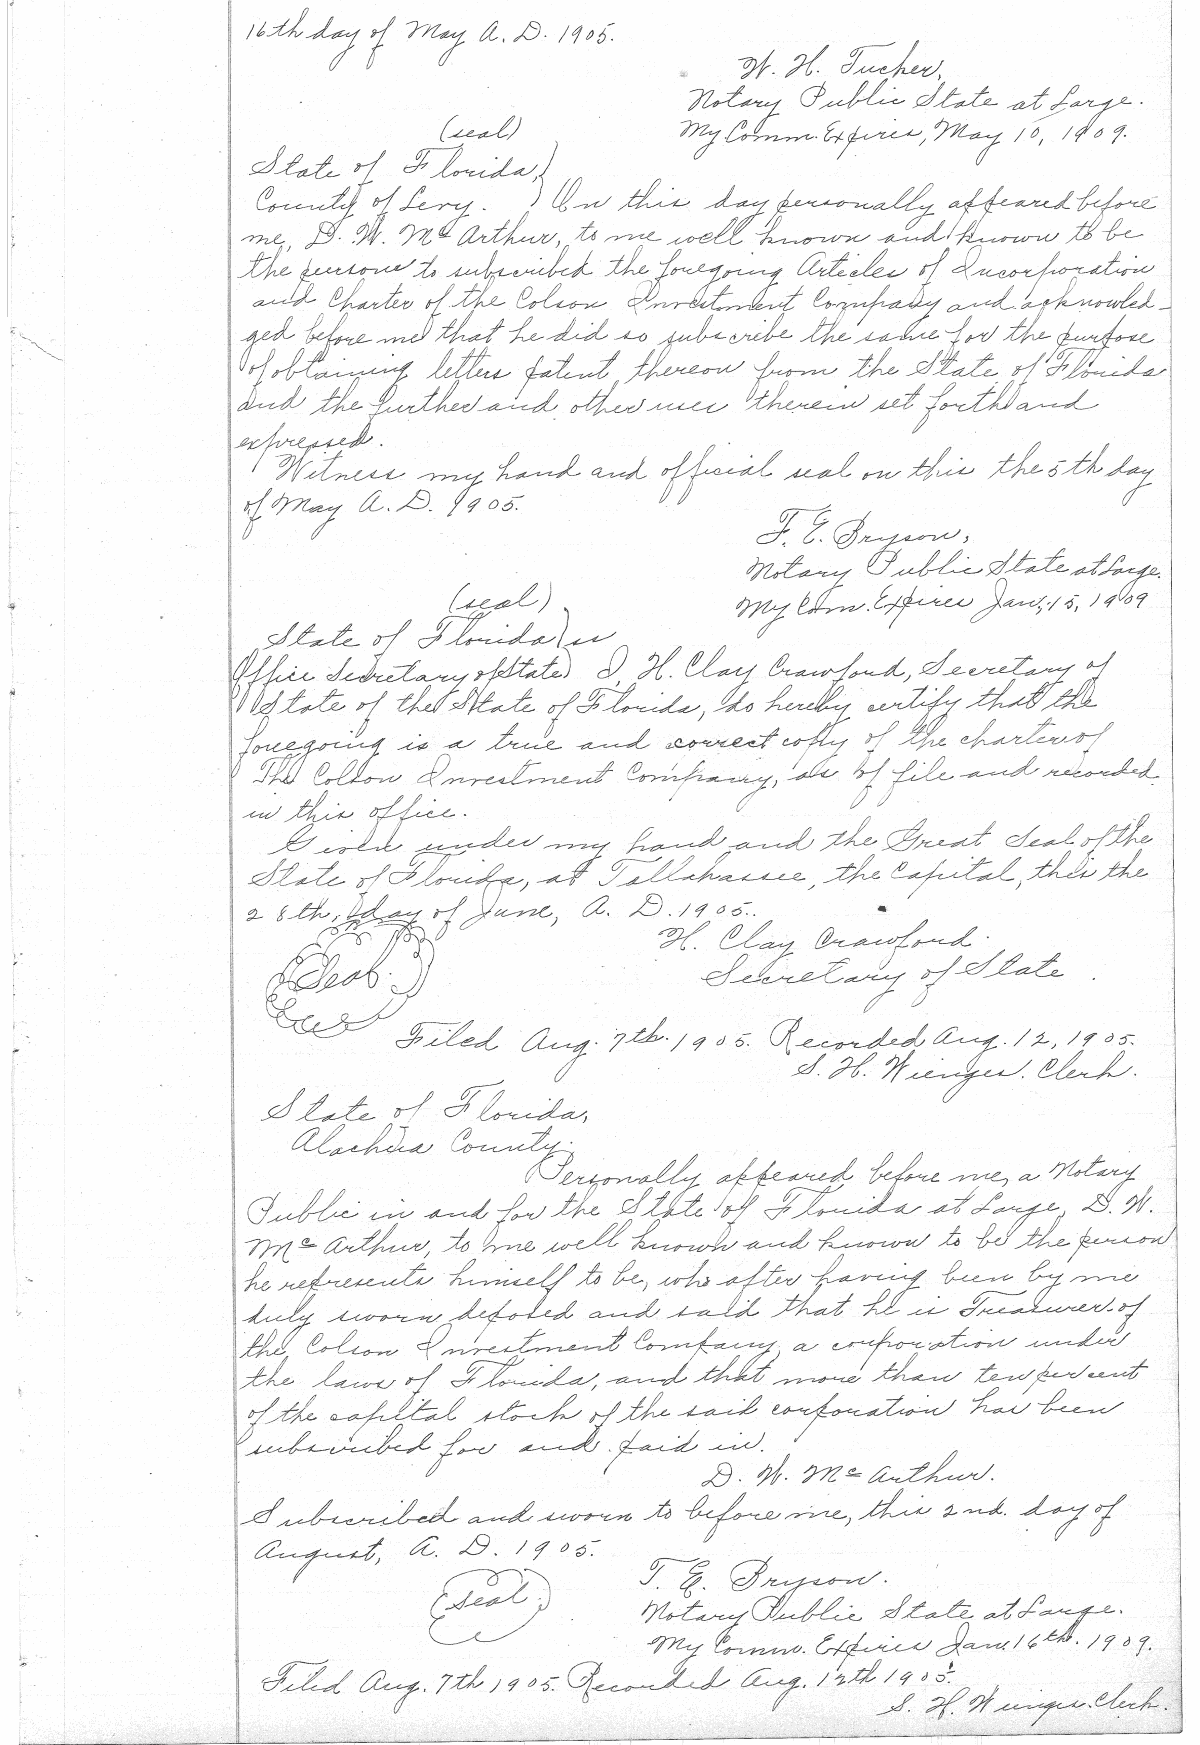 16th day of May A. D. 1905.
W. H. Tucker,
Notary Public State at Large.
(seal) My Comm. Expires, May 10, 1909.
State of Florida,
County of Levy. } On this day personally appeared before
me, D. W. McArthur, to me well known and known to be
the person to subscribed the foregoing Articles of Incorporation
and Charter of the Colson Investment Company and acknowled-
ged before me that he did so subscribe the same for the purpose
of obtaining letters patent thereon from the State of Florida
and the further and other uses therein set forth and
expressed.
Witness my hand and official seal on this the 5th day
of May A. D. 1905.
F. E. Bryson,
Notary Public State at Large.
(seal) My Com. Expires Jan, 15, 1909
State of Florida } ss
Office Secretary of State } I, H. Clay Crawford, Secretary of
State of the State of Florida, do hereby certify that the
foregoing is a true and correct copy of the charter of
The Colson Investment Company, as of file and recorded
in this office.
Given under my hand and the Great Seal of the
State of Florida, at Tallahassee, the Capital, this the
28th, day of June, A. D. 1905.
H. Clay Crawford.
Seal. Secretary of State.
Filed Aug. 7th. 1905. Recorded Aug. 12, 1905.
S. H. Wienges. Clerk.
State of Florida,
Alachua County.
Personally appeared before me, a Notary
Public in and for the State of Florida at Large, D. W.
McArthur, to me well known and known to be the person
he represents himself to be, who after having been by me
duly sworn deposed and said that he is Treasurer of
the, Colson Investment Company, a corporation under
the laws of Florida, and that more than ten per cent
of the capital stock of the said corporation has been
subscribed for and paid in.
D. W. McArthur.
Subscribed and sworn to before me, this 2nd. day of
August, A. D. 1905.
T. E. Bryson.
Seal. Notary Public State at Large.
My Comm. Expires Jan. 16th. 1909.
Filed Aug. 7th 1905. Recorded Aug. 12th 1905.
S. H. Wienges. Clerk.